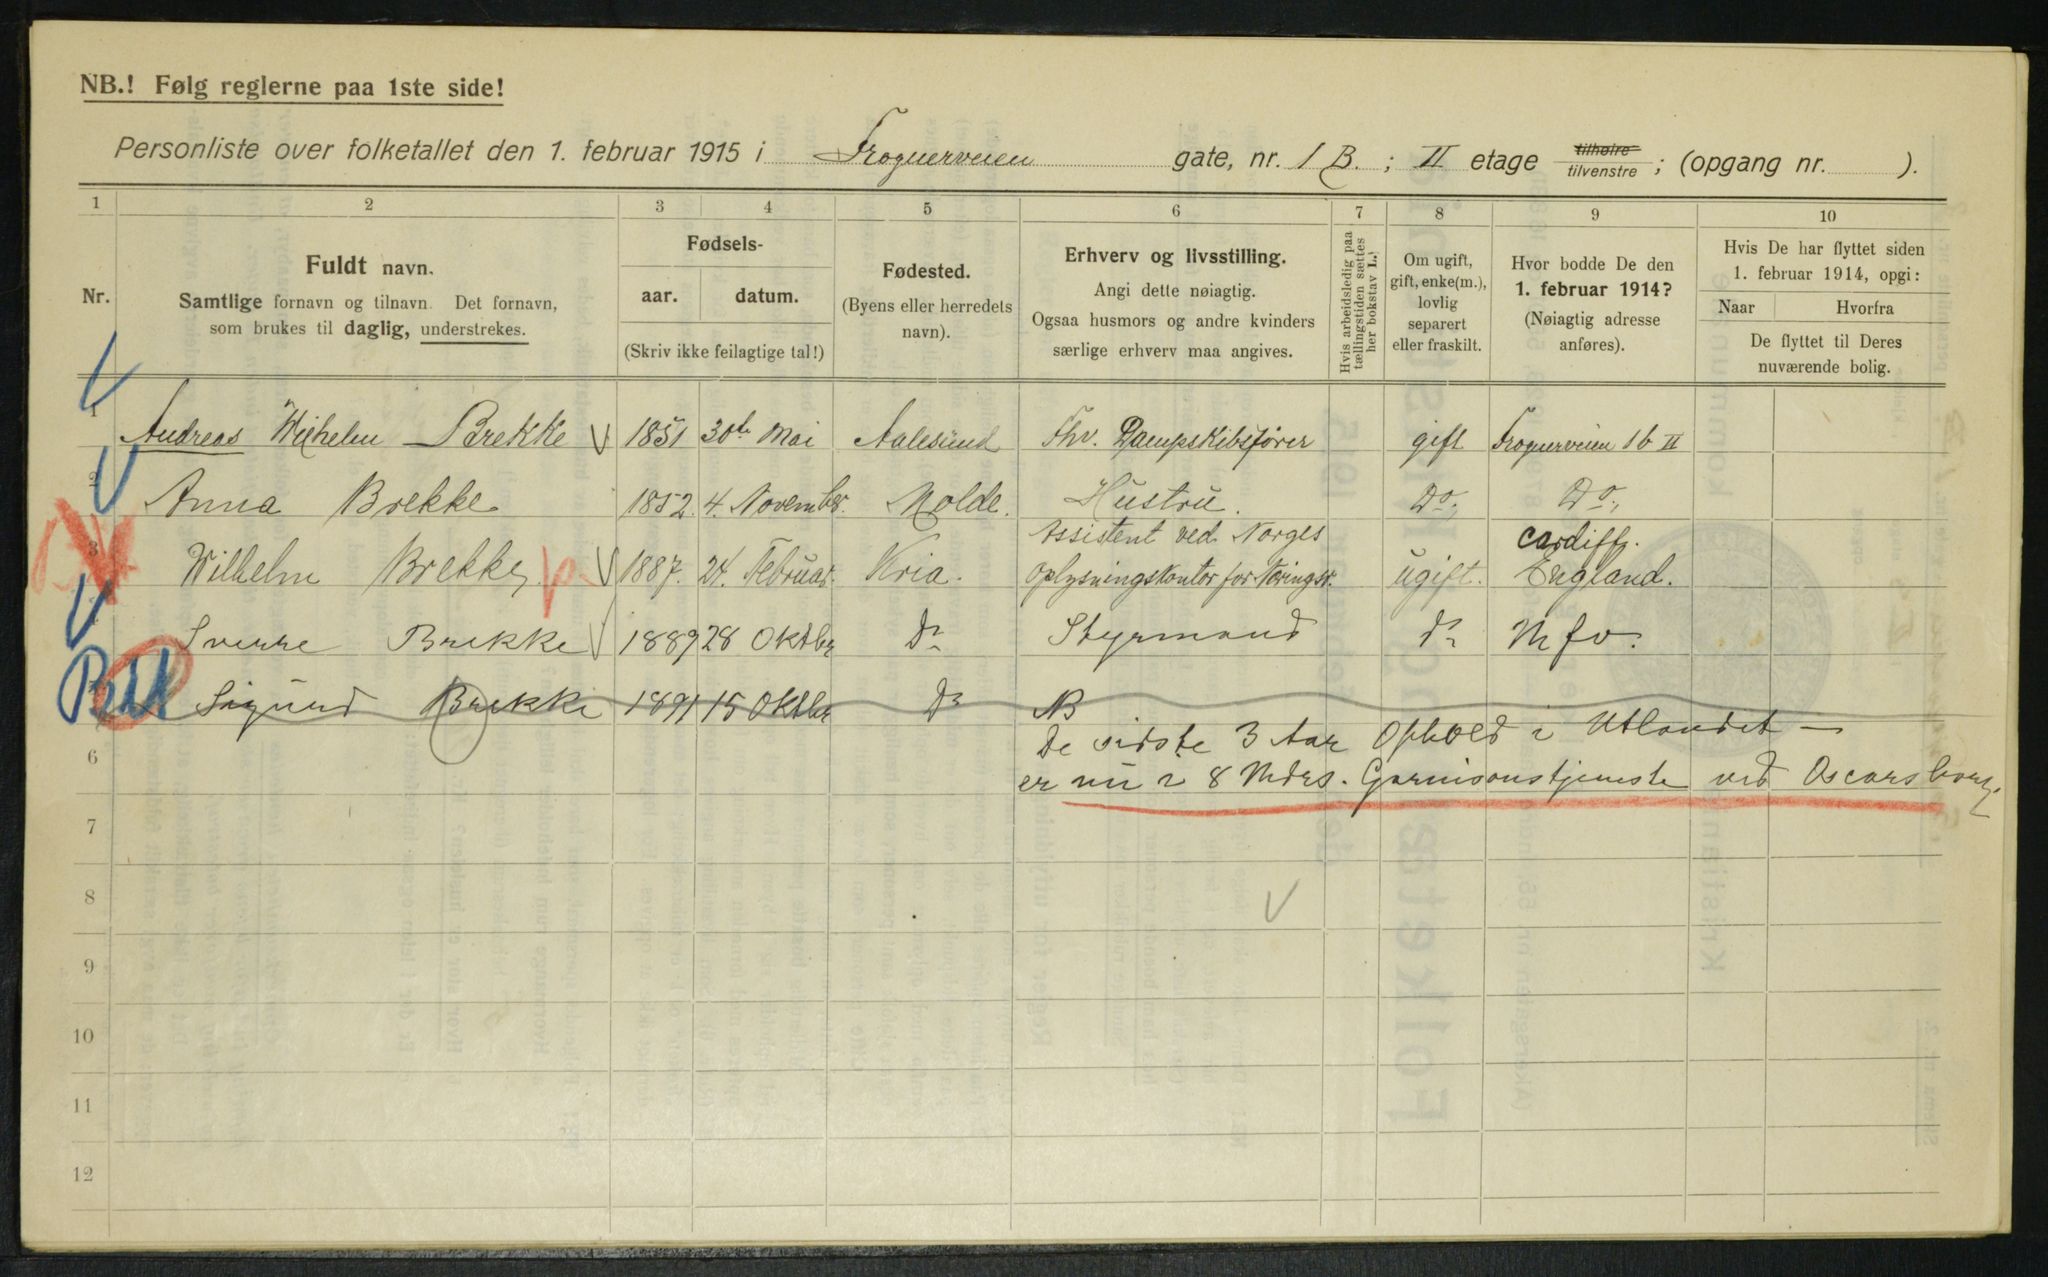 NB.! Følg reglerne paa 1ste side!
Personliste over folketallet den 1. februar 1915 i Frognerveien gate, nr. 1 B. ; II etage tilhøire tilvenstre ; (opgang nr. ).
1 2 3 4 5 6 7 8 9 10
Nr.
Fuldt navn.
Samtlige fornavn og tilnavn. Det fornavn,
som brukes til daglig, understrekes.
Fødsels-
aar. datum.
(Skriv ikke feilagtige tal!)
Fødested.
(Byens eller herredets
navn).
Erhverv og livsstilling.
Angi dette nøiagtig.
Ogsaa husmors og andre kvinders
særlige erhverv maa angives.
Hvis arbeidsledig paa
tællingstiden sættes
her bokstav L.
Om ugift,
gift, enke(m.),
lovlig
separert
eller fraskilt.
Hvor bodde De den
1. februar 1914?
(Nøiagtig adresse
anføres).
Hvis De har flyttet siden
1. februar 1914, opgi:
Naar Hvorfra
De flyttet til Deres
nuværende bolig.
1 Andreas Wilhelm Brekke 1851 30te Mai Aalesund Fhv. Dampskibsfører gift Frognerveien 1 b II
2 Anna Brekke 1852. 4. November. Molde. Hustru. Do. Do.
3 Wilhelm Brekke 1887. 24. Februar. Kria. Assistent ved Norges
Oplysningskontor for Næringsv. ugift. Cardiff.
England.
Sverre Brekke 1889 28 Oktbr Do Styrmand do Mfo.
Sigurd Brekke 1891 15 Oktbr Do NB
De sidste 3 Aar Ophold i Utlandet —
6 er nu i 8 Mdrs. Garnisonstjeneste ved Oscarsborg.
7
8
9
10
11
12